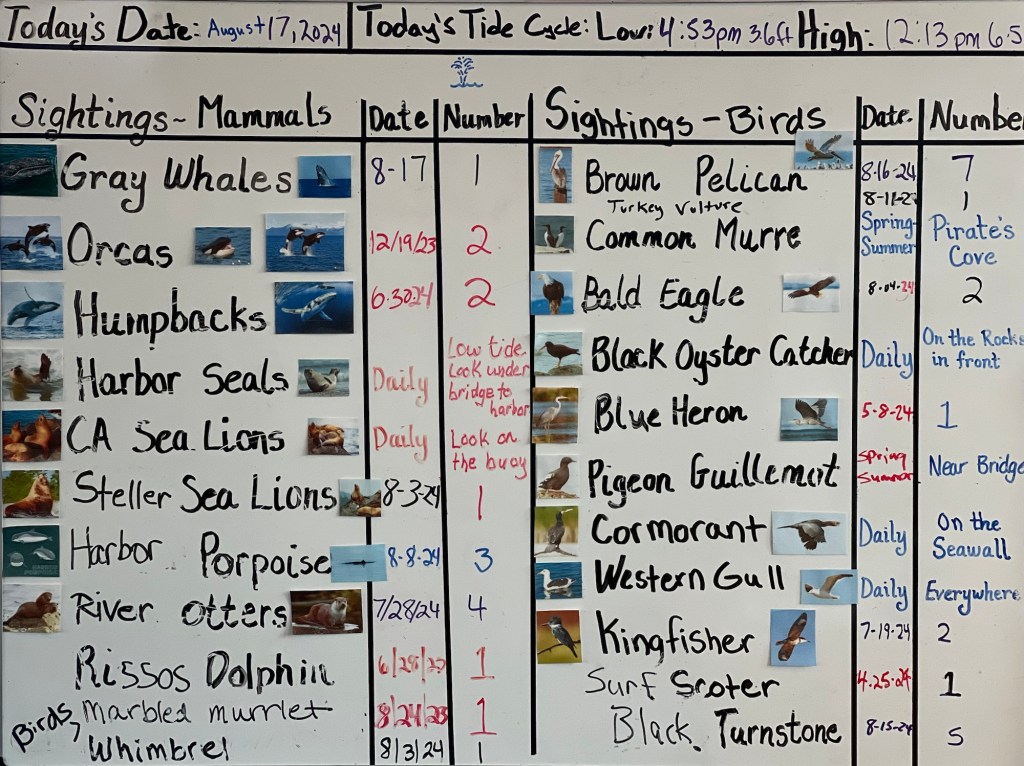 Today's Date: August 17, 2024 Today's Tide Cycle: Low: 4:53pm 3.6ft High: 12:13pm 6.5
Sightings- Mammals Date Number
Gray Whales 8-17 1
Orcas 12/19/23 2
Humpbacks 6.30.24 2
Harbor Seals Daily Low tide
Look under
bridge to
harbor
CA Sea Lions Daily Look on
the buoy
Steller Sea Lions 8-3-24 1
Harbor Porpoise 8-8-24 3
River otters 7/28/24 4
Rissos Dolphin 1
Birds, Marbled murrlet 8/24/23 1
Whimbrel 8/3/24 1
Sightings - Birds Date Number
Brown Pelican 8-16-24 7
Turkey Vulture 1
Common Murre Spring- Pirate's
Summer Cove
Bald Eagle 8-04-24 2
Black Oyster Catcher Daily On the Rocks
in front
Blue Heron 5-8-24 1
Pigeon Guillemot Spring Near Bridge
Summer
Cormorant Daily On the
Seawall
Western Gull Daily Everywhere
Kingfisher 7-19-24 2
Surf Scoter 4.25.24 1
Black Turnstone 8-15-24 5